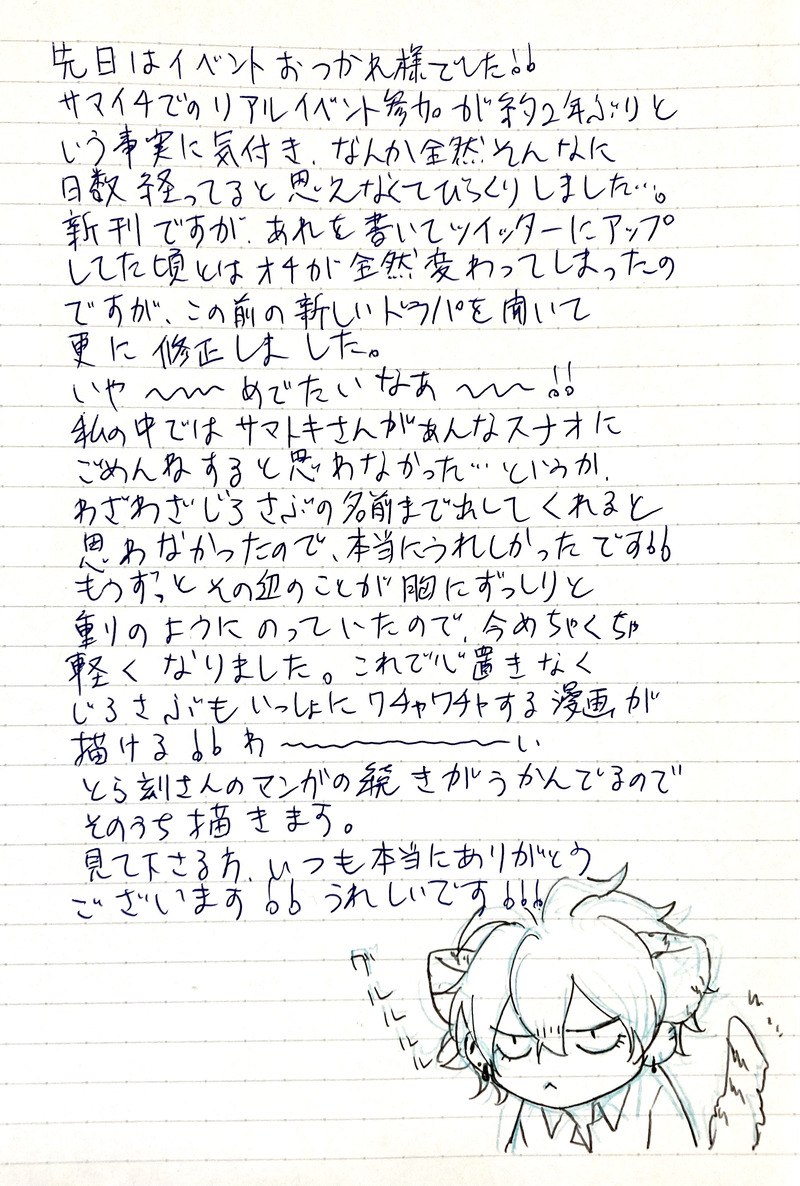 先日はイベントおつかれ様でした!!
サマイチでのリアルイベント参加が約2年ぶりと
いう事実に気付き、なんか全然そんなに
日数経ってると思えなくてびっくりしました…。
新刊ですが、あれを書いてツイッターにアップ
してた頃とはオチが全然変わってしまったの
ですが、この前の新しいドラパを聞いて
更に修正しました。
いや〜〜〜めでたいなあ〜〜〜!!
私の中ではサマトキさんがあんなスナオに
ごめんねすると思わなかった…というか、
わざわざじろさぶの名前まで出してくれると
思わなかったので、本当にうれしかったです!!
もうずっとその辺のことが胸にずっしりと
重りのようにのっていたので、今めちゃくちゃ
軽くなりました。これで心置きなく
じろさぶもいっしょにワチャワチャする漫画が
描ける!!わ〜〜〜〜〜〜い
とら刻さんのマンガの続きがうかんでるので
そのうち描きます。
見て下さる方、いつも本当にありがとう
ございます!!うれしいです!!!
グルルルル